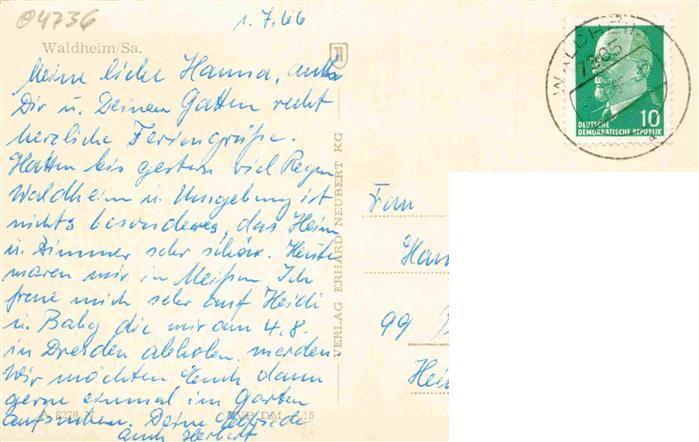 04736
1.7.66
Waldheim/Sa.
Meine liebe Hanna, auch
Dir u. Deinem Gatten recht
herzliche Feriengrüße.
Hatten bis gestern viel Regen
Waldheim u Umgebung ist
nichts besonderes, das Heim
u. Zimmer sehr schön. Heute
waren wir in Meißen. Ich
freue mich sehr auf Heidi
u Baby die wir am 4.8.
in Dresden abholen werden
Wir möchten Euch dann
gerne einmal im Garten
aufsuchen. Deine Elfriede
auch Herbert
VERLAG ERHARD NEUBERT KG
WALDHEIM
7305
10
DEUTSCHE
DEMOKRATISCHE REPUBLIK
Frau
99